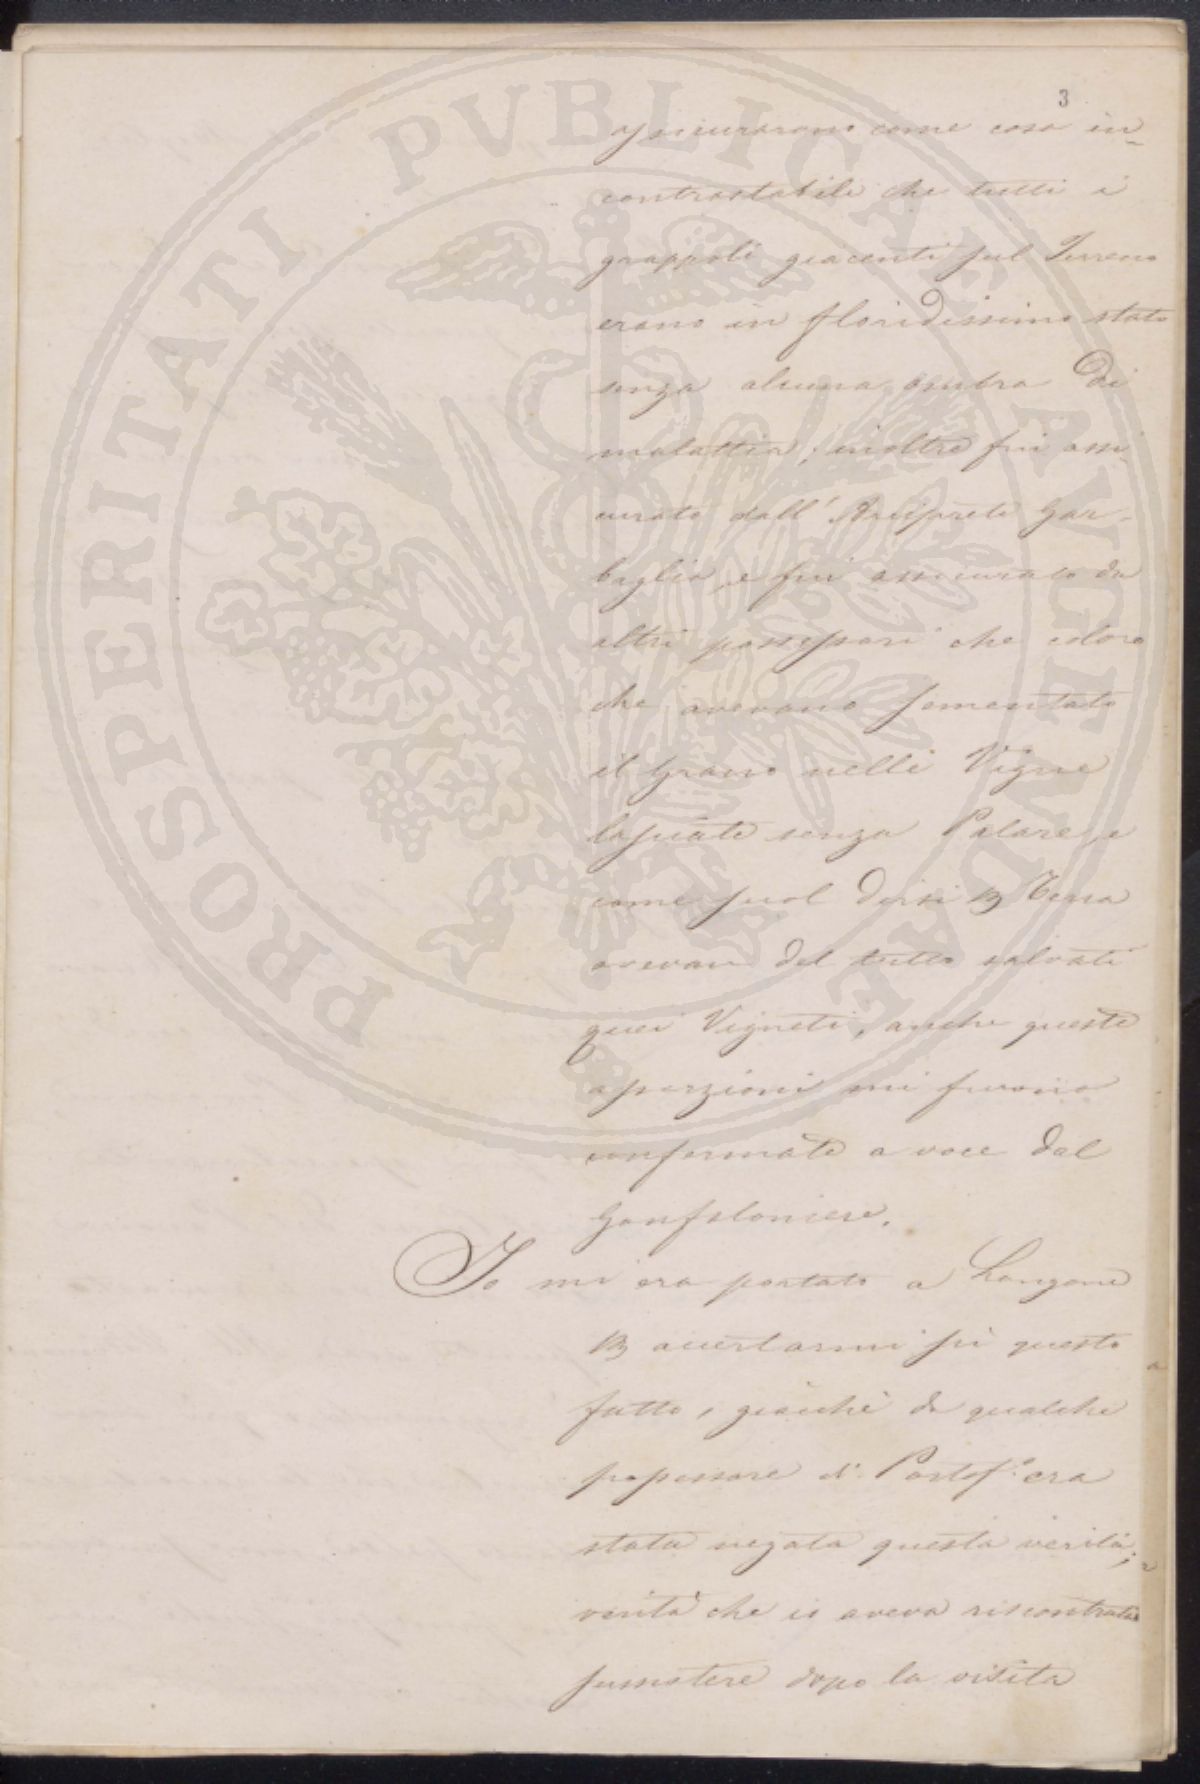 3
assicurarono come cosa in-
contrastabile che tutti i
grappoli giacenti sul Terreno
erano in floridissimo stato
senza alcuna ombra di
malattia; inoltre fui assi-
curato dall'Arciprete Gar-
baglia, e fui assicurato da
altri possessori che coloro
che avevano sementato
il Grano nelle Vigne
lasciate senza Palare, e
come suol dirsi p Terra
avevan del tutto salvati
quei Vigneti, anche queste
asserzioni mi furono
confermate a voce dal
Gonfaloniere.
Io mi era portato a Longone
p accertarmi su questo
fatto, giacchè da qualche
possessore di Portof.o era
stata negata questa verità;
verità che io aveva riscontrata
sussistere dopo la visita
PROSPERITATI PVBLICAE AVGENDAE